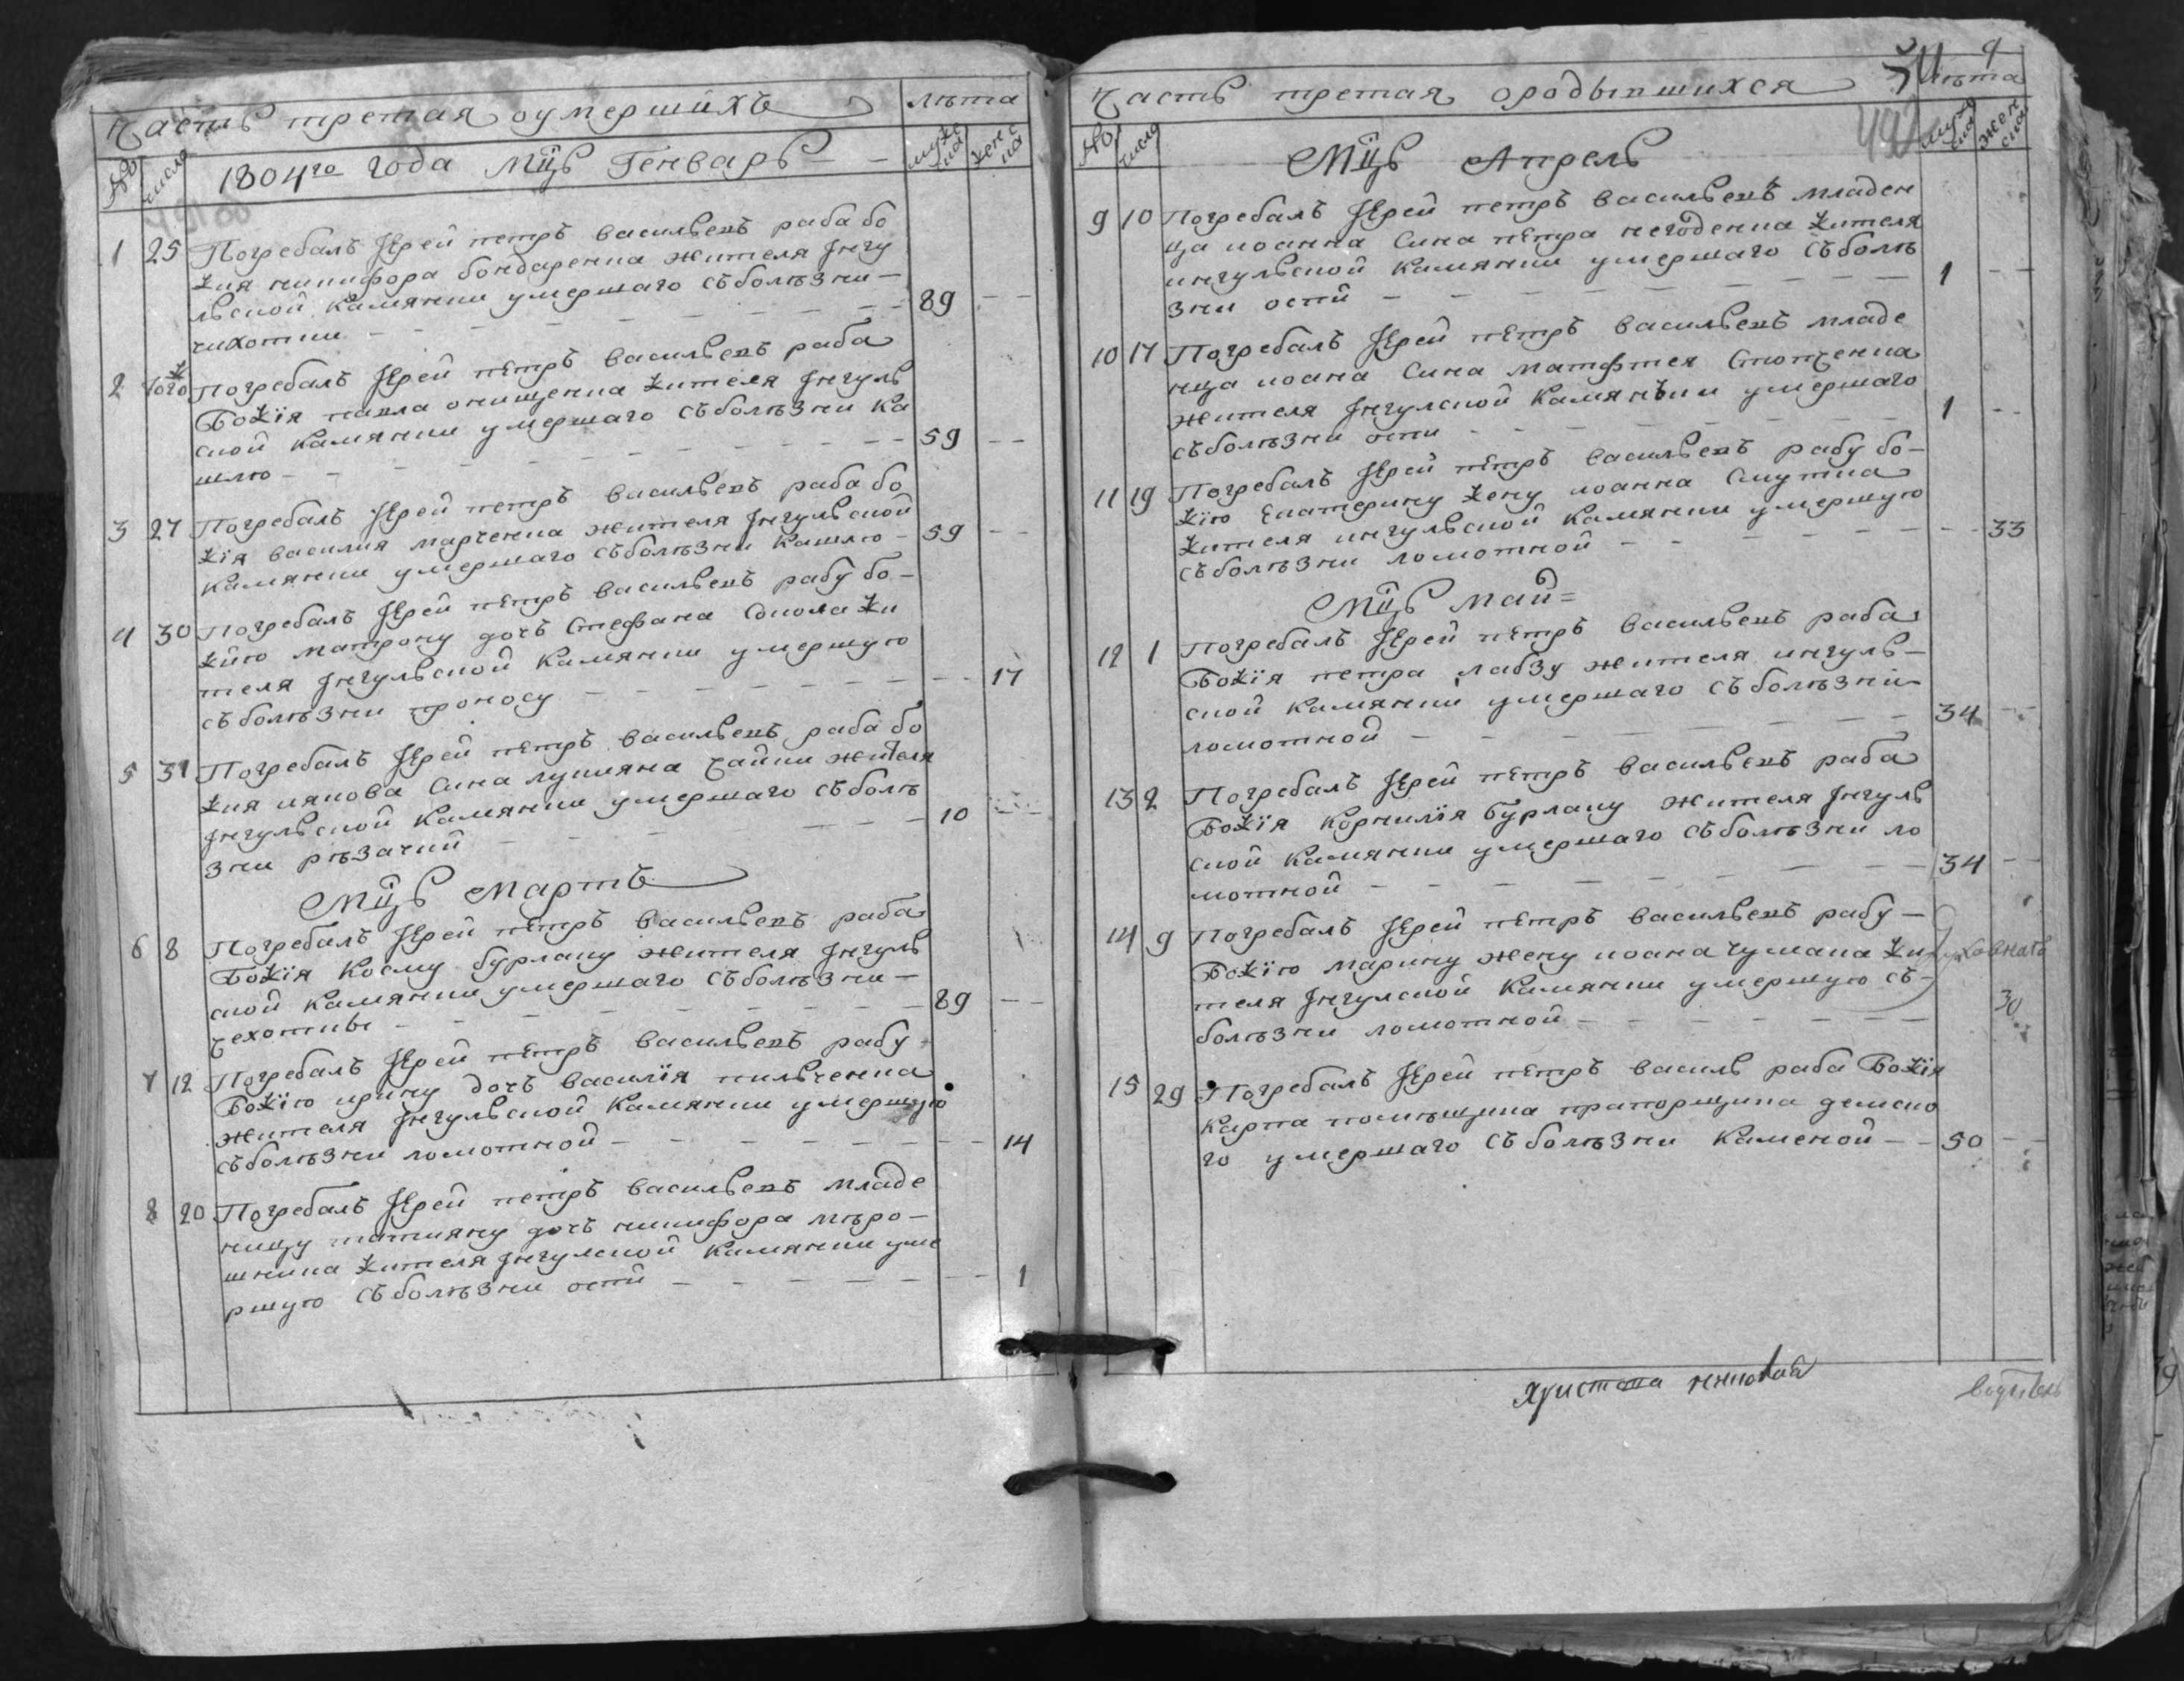 Часть третая оумершихъ
лѣта
№
числа
1804го года Мцъ Генварь
мужеска
женска
1 25 Погребалъ Іерей петръ васильевъ раба бо
жия никифора бондаренка жителя Ингу
льской Камянки умершаго съболѣзни —
чихотки — 89 — —
2 Тогож Погребалъ Іерей петръ васильевъ раба
Божія павла онищенка жителя Ингуль
ской Камянки умершаго съболѣзни Ка
шлю — 59 — —
3 27 Погребалъ Іерей петръ васильевъ раба бо
жія василия марченка жителя Ингульской
Камянки умершаго съболѣзни Кашлю — 59 — —
4 30 Погребалъ Іерей петръ васильевъ рабу бо-
жию матрону дочъ Стефана Сокола жи
теля Ингульской Камянки умершую
съболѣзни проносу — — 17
5 31 Погребалъ Іерей петръ васильевъ раба бо
жия иякова Сина лукияна Чайки жителя
Ингульской Камянки умершаго съболѣ
зни рѣзачий — 10 — —
Мцъ Мартъ
6 8 Погребалъ Іерей петръ васильевъ раба
Божія Косму бурлаку жителя Ингуль
ской Камянки умершаго съболѣзни —
чехотки — 89 — —
7 12 Погребалъ Іерей петръ васильевъ рабу
Божію ирину дочъ василія пильченка
жителя Ингульской Камянки умершую
съболѣзни ломотной — — 14
8 20 Погребалъ Іерей петръ васильевъ младе
ницу татияну дочъ никифора мѣро-
шника жителя Ингулской Камянки уме
ршую съболѣзни оспи — — 1
Часть третая ородывшихся
лѣта
4
492
№
числа
Мцъ Апрель
мужеска
женска
9 10 Погребалъ Іерей петръ васильевъ младен
ца иоанна Сина петра негоденка жителя
ингульской Камянки умершаго съболѣ
зни оспи — 1 — —
10 17 Погребалъ Іерей петръ васильевъ младе
нца иоана Сина матфтея Стопченка
жителя Ингулской Камянъки умершаго
съболѣзни оспи — 1 — —
11 19 Погребалъ Іерей петръ васильевъ рабу бо-
жію Екатерину жену иоанна Скутка
жителя ингульской Камянки умершую
съболѣзни ломотной — — 33
Мцъ май=
12 1 Погребалъ Іерей петръ васильевъ раба
Божія петра лабзу жителя ингуль-
ской Камянки умершаго съболѣзни
ломотной — 34 — —
13 2 Погребалъ Іерей петръ васильевъ раба
Божія Корнилія бурлаку жителя Ингуль
ской Камянки умершаго съболѣзни ло
мотной — 34 — —
14 9 Погребалъ Іерей петръ васильевъ рабу —
Божію марину жену иоана чумака жи
теля Ингулской Камянки умершую съ-
болѣзни ломотной — 30
15 29 Погребалъ Іерей петръ василь раба Божія
Карпа помѣщика прапорщика демско
го умершаго съболѣзни Каменой — 50 — —